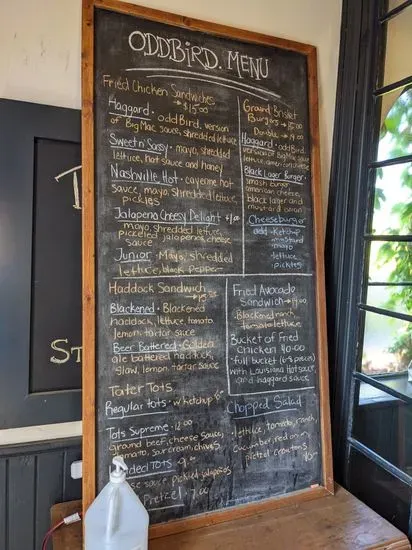 OddBird. MENU
Fried Chicken Sandwiches
→ $15.00
Haggard · oddBird. version
of Big Mac sauce, shredded lettuce
Sweet n' Sassy · mayo, shredded
lettuce, hot sauce and honey
Nashville Hot · cayenne hot
sauce, mayo, shredded lettuce,
pickles
Jalapeno Cheesy Delight
mayo, shredded lettuce,
pickeled jalapenos, cheese
sauce
Junior · Mayo, shredded
lettuce, black pepper
Haddock Sandwich
Blackened · Blackened
haddock, lettuce, tomato
lemon, tartar sauce
Beer Battered · Golden
ale battered haddock,
slaw, lemon, tartar sauce
Tater Tots
Regular tots · w/ ketchup
Tots Supreme · 12.00
ground beef, cheese sauce,
tomato, sour cream, chives
Loaded tots
cheese sauce pickled jalapeños
Pretzel · 7.00
Ground Brisket
Burgers → 15.00
Double →
Haggard · oddBird.
version of Big Mac sauce
lettuce, american cheese
Black Lager Burger ·
smash burger,
american cheese,
black lager and
mustard onion
Cheeseburger
add · Ketchup
mustard
mayo
lettuce
pickles
Fried Avocado
Sandwich → 14.00
Blackened ranch,
tomato, lettuce
Bucket of Fried
Chicken 40.00
· full bucket (6-8 pieces)
with Louisiana Hot sauce
and haggard sauce
Chopped Salad
· lettuce, tomato, ranch,
cucumber, red onion,
pretzel croutons
St